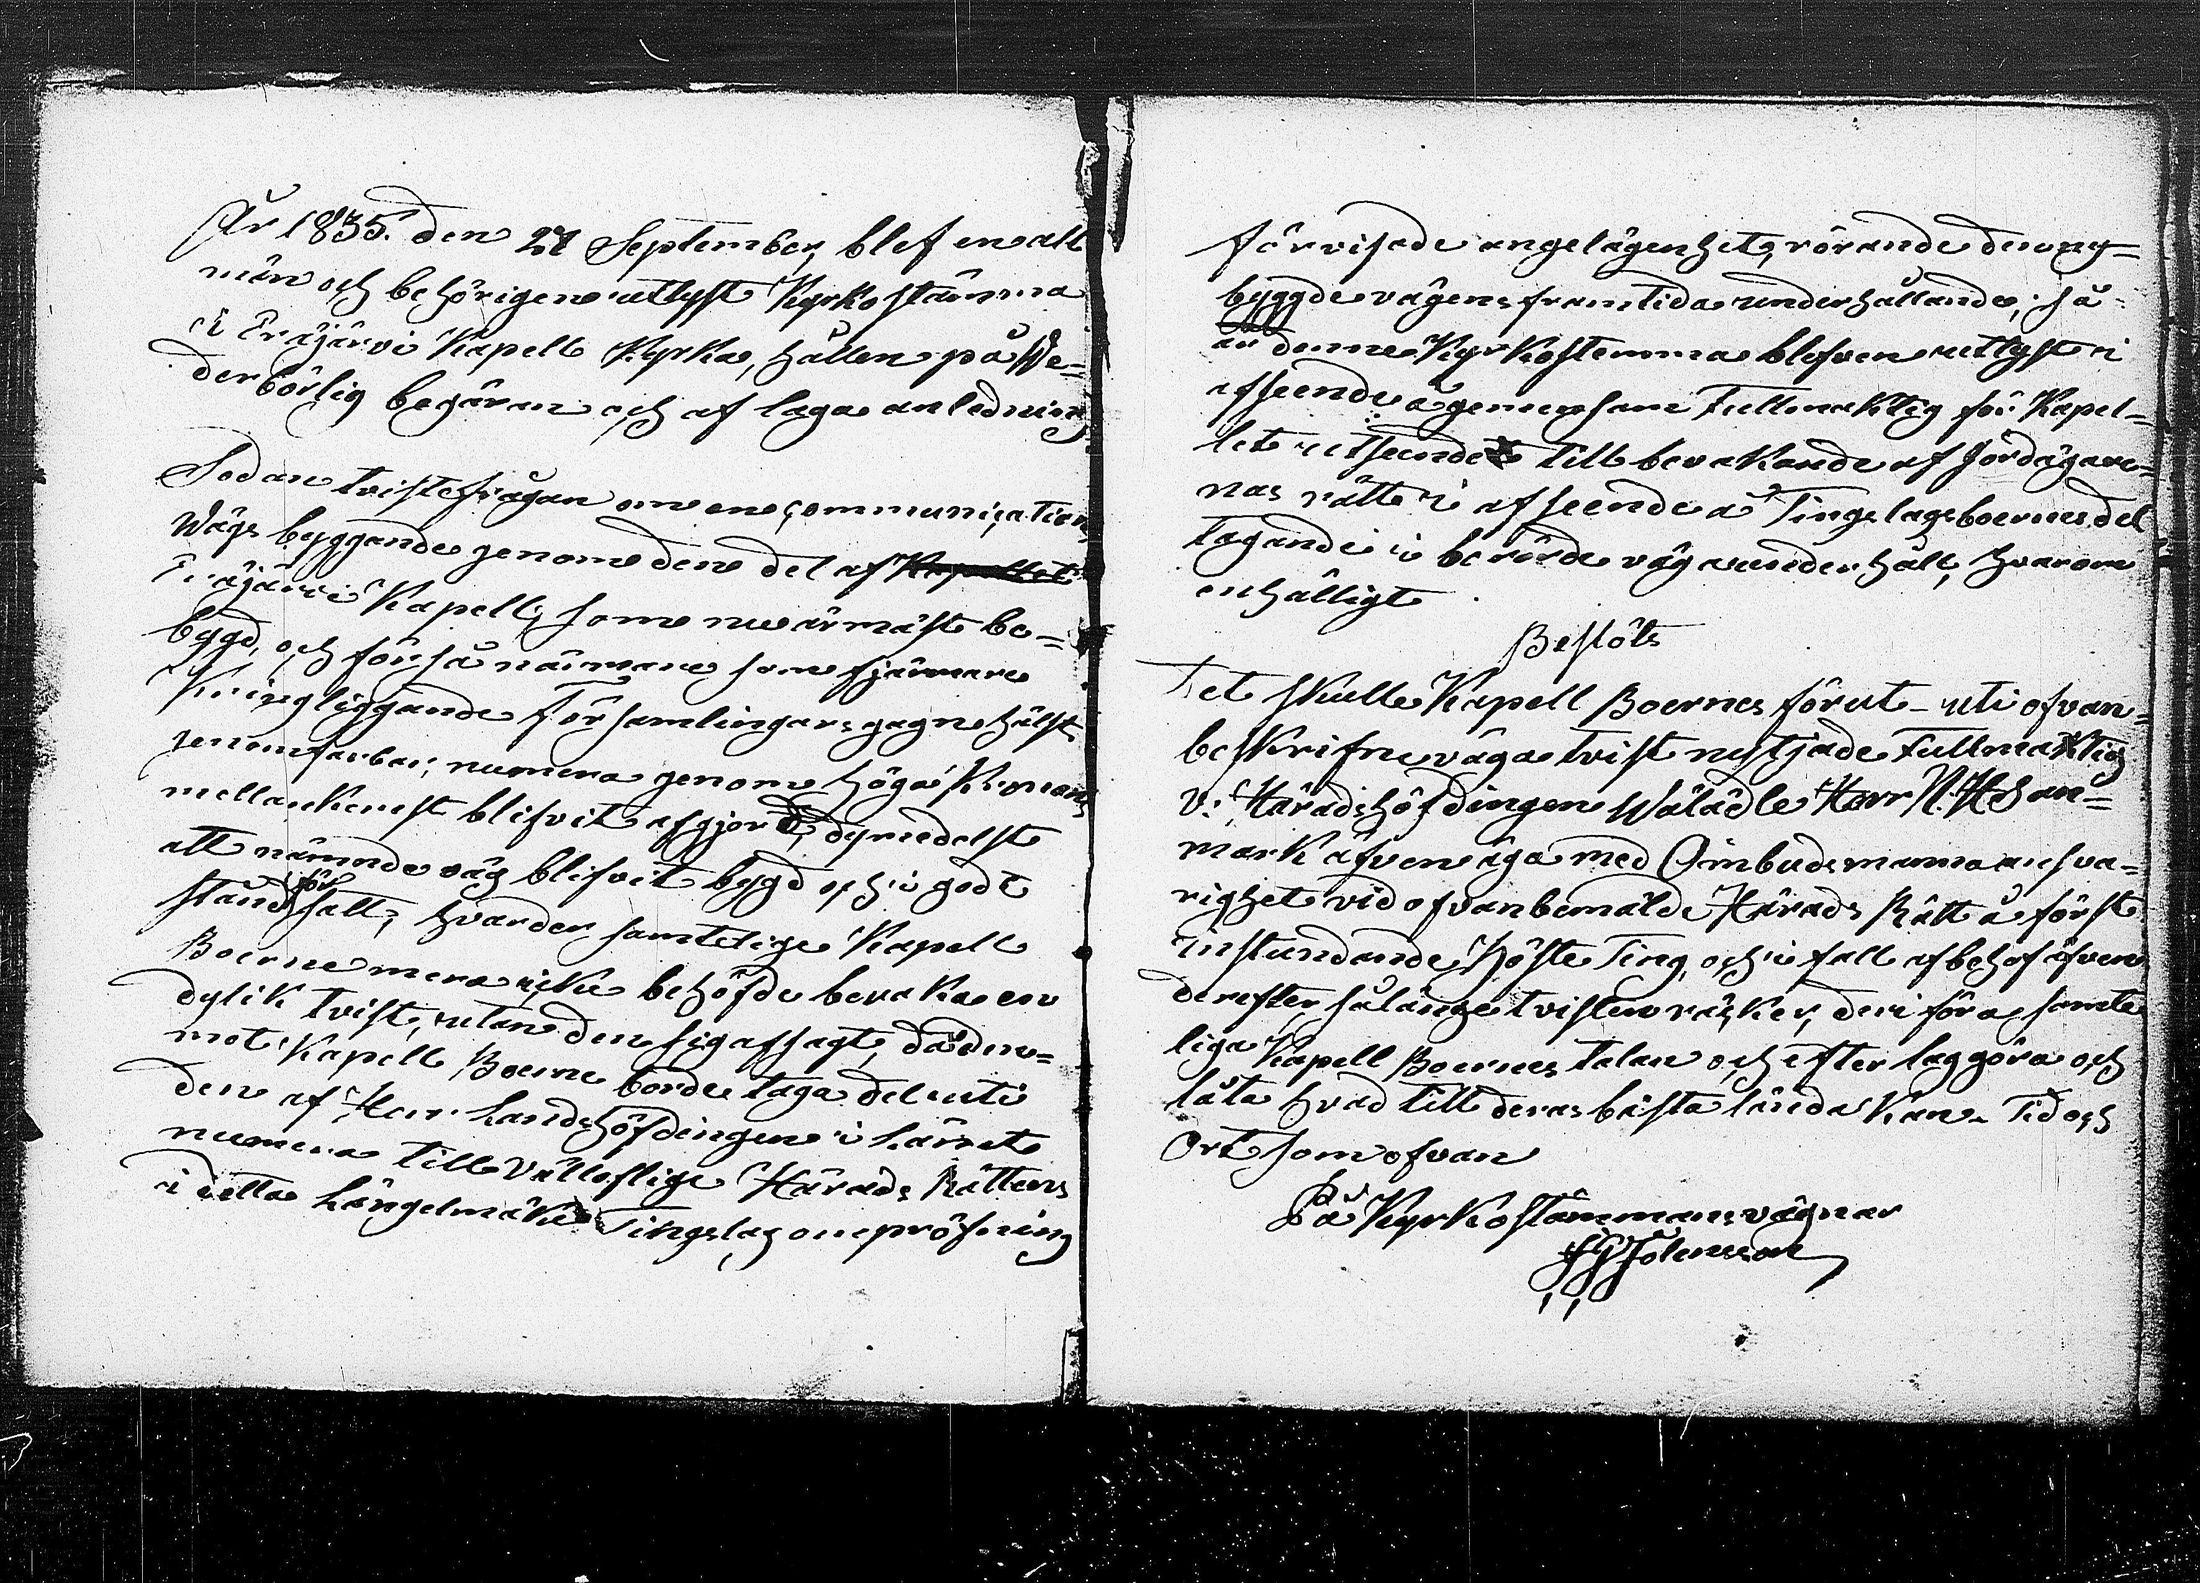 År 1835. den 27 September, blef en all
män och behörigen utlyst Kyrkostämma
i Eräjärvi Kapell Kyrka, hållen på ve=
derbörlig begäran och af laga anledning
Sedan tvistefrågan om en communication
Wägs byggande genom den del af Kapellet
Eräjärvi Kapell, som nu är mäst be=
bygd, och för så närmare som fjärmare
Kringliggande Församlingars gagn hälst
genomfarbar, numera genom höga Kronans
mellankomst blifvit afgjord, dymedelst
att nämnde väg blifvit bygd och i godt
stånd för satt, hvarder samtelige Kapell
Boerne mera icke behöfde bevaka en
dylik tvist, utan den sig afsagt, då der=
mot Kapell Boerne borde taga del uti
den af Herr Landshöfdingen i Länet
numera till Välloflige Härads Rättens
i detta Längelmäki Tingslag ompröfning
förvisade angelägenhet, rörande den ny=
byggde vägens framtida underhållande; så
är denne Kyrkostemma blefven utlyst i
afseende å gemensam Fullmäktig för Kapel=
let utseende till bevakande af Jordägare=
nas rätt i afseende å Tingslagsboernes del
tagande i berörde väga underhåll, hvarom
enhälligt
Beslöts
Det skulle Kapell Boernes förut uti ofvan=
beskrifne väga tvist nytjade Fullmäktig
v. Häradshöfdingen Wälädle Herr N. H. San=
mark äfven äga med Ombudsmanna ansva=
righet vid ofvanbemälde Härads Rätt å först
instundande Höste Ting, och i fall af behof äfven
derefter, så länge tvisten räcker, deri föra samte
liga Kapell Boernes talan och efter lag göra och
låta hvad till deras bästa lända kan. Tid och
Ort som ofvan
På Kyrkostämmans vägnar